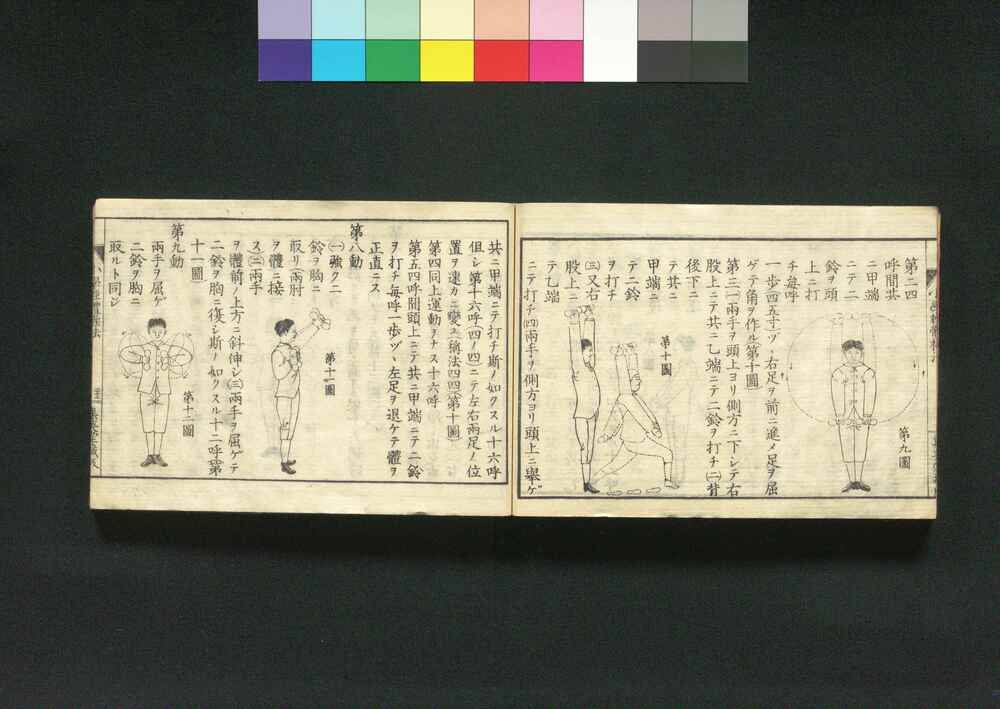 第二四
呼間其
二甲端
ニテ二
鈴ヲ頭
上ニ打
チ每呼
一歩(四五寸)ヅヽ右足ヲ前ニ進メ足ヲ屈
ゲテ角ヲ作ル(第十圖)
第三(一)兩手ヲ頭上ヨリ側方ニ下シテ右
股上ニテ共ニ乙端ニテ二鈴ヲ打チ(二)背
後下ニ
テ其ニ
甲端ニ
テ二鈴
ヲ打チ
(三)又右
股上ニ
テ乙端
ニテ打チ(四)兩手ヲ側方ヨリ頭上ニ擧ゲ
第九圖
第十圖
共ニ甲端ニテ打チ斯ノ如クスル十六呼
但シ第十六呼(四ノ四)ニテ左右兩足ノ位
置ヲ速カニ變ユ稱法四四(第十圖)
第四同上運動ヲナス十六呼
第五四呼間頭上ニテ共ニ甲端ニテ二鈴
ヲ打チ每呼一歩ヅヽ左足ヲ退ケテ體ヲ
正直ニス
第八動
(一)強クニ
鈴ヲ胸ニ
取リ(兩肘
ヲ體ニ接
ス)(二)兩手
ヲ體前ノ上方ニ斜伸シ(三)兩手ヲ屈ゲテ
二鈴ヲ胸ニ復シ斯ノ如クスル十二呼(第
十一圖)
第九動
兩手ヲ屈ゲ
二鈴ヲ胸ニ
取ルト同ジ
第十一圖
第十二圖